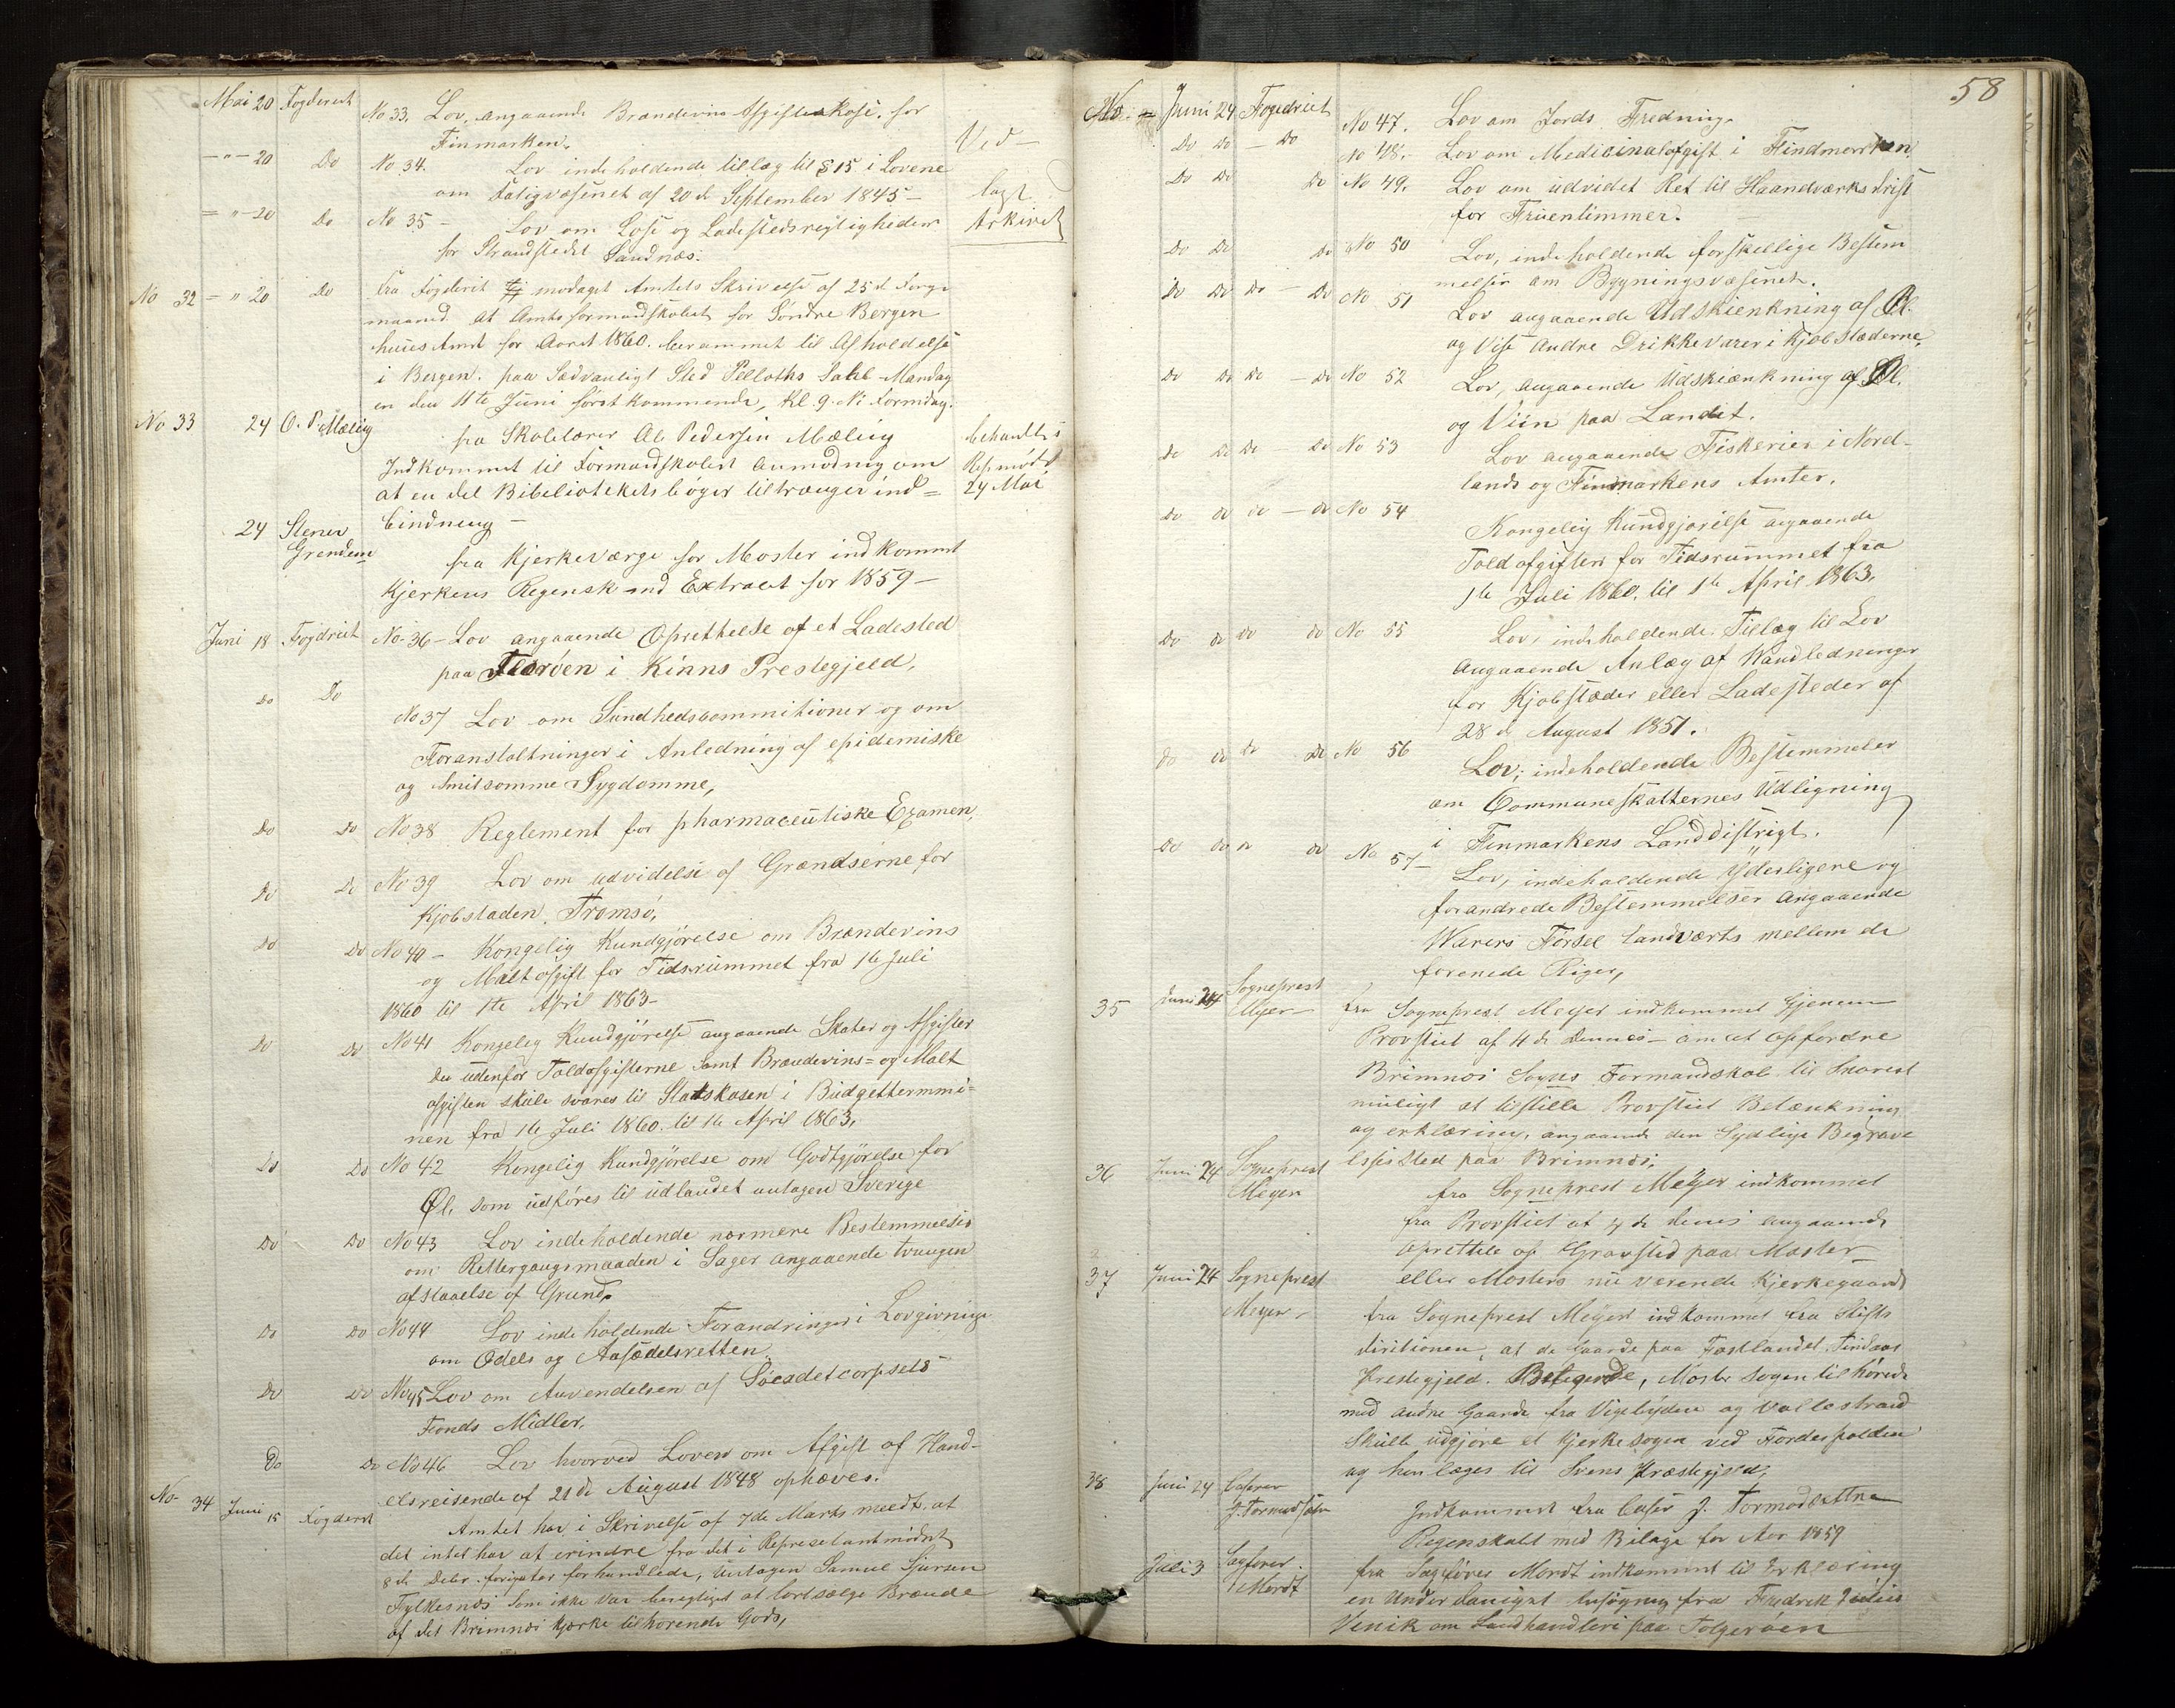 Mai 20 Fogderiet No 33. Lov, angaaende Brændevins Afgiftens for
Finmarken.
Ved-
-"- 20 Do No 34. Lov indeholdende tillæg til § 15 i Lovene
om Fatigvæsenet af 20de September 1845 -
lagt
= "- 20 Do No 35 - Lov om Lose og Ladestedsrigtigheder
Arkivet
for Strandstedet Sandnæs.
No 32 = " 20 Do Fra Fogderiet modaget Amtets Skrivelse af 25de forge
maaned at Amtsformandskabet for Söndre Bergen
huus Amt for Aaret 1860. berammet til Afholdelse
i Bergen. paa Sædvanligt Sted Mandag
en den 11te Juni förstkommende, Kl. 9. Ni Formdag.
No 33 24 O. P. Mæling fra Skolelærer Ole Pedersen Mæling
behandles
Indkommet til Formandskabet anmodning om
Rep.mödet
at en del Bibeliotekets böger tiltrænger ind=
24 Mai
binding -
24 Stener
Grendem fra Kjerkeværge for Moster indkommet
Kjerkens Regensk- Extract for 1859 -
Juni 18 Fogdriet No- 36 - Lov angaaende Oprettelse af et Ladested
paa Florôen i Kinns Prestegjeld,
Do Do No 37 Lov om Sundhedscommitioner og om
Foranstaltninger i Anledning af epidemiske
og Smitsomme Sygdomme,
Do Do No 38 Reglement for pharmaceutiske Examen,
Do Do No 39 Lov om udvidelse af Grændserne for
Kjobstaden Tromsö,
Do Do No 40 - Kongelig Kundgjörelse om Brændevins
og Maltafgift for Tidsrummet fra 1te Juli
1860 til 1te April 1863 -
Do Do No 41 Kongelig Kundgjörelse angaaende Skater og Afgifter
der udenfor Toldafgifterne samt Brændevins= og Malt
afgiften skule svares til Statskasen i Budgettermmi=
nen fra 1te Juli 1860. til 1te April 1863,
Do Do No 42 Kongelig Kundgjörelse om Godtgjörelse for
Øl, som udföres til udlandet untagen Sverige
Do Do No 43 Lov indeholdende nærmere Bestemmelser
om Rettergangsmaaden i Sager angaaende tvungen
afstaaelse af Grund.
Do Do No 44 Lov indeholdende Forandringer i Lovgivninge
om Odels og Aasædelsretten
Do Do No 45 Lov om Anvendelsen af Söcadetcorpsets
Fonds Midler,
Do Do No 46 Lov hvorved Loven om Afgift af Hand-
elsreisende af 21de August 1848 ophæves.
No- 34 Juni 15 Fogderiet Amtet har i Skrivelse af 7de Marts meedt, at
det intet har at erindre fra det i Represetantmödet
8de Debr. forigaar forhandlede, untagen Samuel Sjursen
Fylkesnæs som ikke var berigtiget at bortsælge Brænde
af det Brimnæs Kjerke tilhorende Gods,
58
No Juni 24 Fogedriet No 47. Lov om Jords Fredning.
Do Do - Do No 48. - Lov om Medicinalafgift i Findmarken,
Do Do Do No 49. Lov om udvidet Ret til Haandværksdrift
for Fruentimmer.
Do Do Do No 50 Lov, indeholdende forskellige Bestem
melser om Bygningsvæsenet.
Do Do Do - Do No 51 Lov angaaende Udskienkning af Øl.
og Vise Andre Drikkevarer i Kjobstæderne,
Do Do Do - Do No 52 Lov, angaaende Udskiænkning af Øl.
og Viin paa Landet.
Do Do Do - Do No 53 Lov angaaende Fiskerier i Nord-
lands og Finmarkens Amter.
Do Do Do - Do No 54 Kongelig Kundgjorelse angaaende
Toldafgifter for Tidsrummet fra
1te Juli 1860. til 1te April 1863.
Do Do Do Do No 55 Lov, indeholdende Tillæg til Lov
angaaende Anlæg af Wandledninger
for Kjobstæder eller Ladesteder af
28de August 1851.
Do Do Do Do No 56 Lov, indeholdende Bestemmelser
om Communeskatternes Udligning
i Finmarkens Landdistrigt.
Do Do Do Do No 57 - Lov, indeholdende yderligere og
forandrede Bestemmelser angaaende
Warers Försel landværts mellem de
forenede Riger,
35 Juni 24 Sogneprest
Meyer - fra Sogneprest Meyer indkommet Gjennem
Provstiet af 11de Dennes - om at opfordre
Brimnæs Sogns Formandskab til Snarest
muligt at tilstille Provstiet Betænkning
og erklæring, angaaende den Sydlige Begrave
lsessted paa Brimnæs,
36 Juni 24 Sogneprest
Meyer fra Sogneprest Meyer indkommet
fra Provstiet af 4de denes angaaende
Oprettele af Gravsted paa Moster
eller Mosters nu værende Kjerkegaard
37 Juni 24 Sogneprest
Meyer, fra Sogneprest Meyer indkommet fra Stifts
diritionen, at de Gaarde paa Fastlandet, Findaas
Prestegjeld. , Moster Sogen tilhörende
med Andre Gaarde fra Vigebÿden og Vallestrand
Skulle udgjöre et Kjerkesogen ved Fördespolden
og henlæges til Svens Præstegjeld,
38 Juni 24 Caserer
J. Tormodsæter Indkommet fra Caser J. Tormodsættre
Regenskabet med Bilage for Aar 1859
Juli 3 Sagförer
Mordt fra Sagförer Mordt indkommet til Erklæring
en Underdanigst Ansögning fra Fredrek Julius
om Landhandleri paa Folgeröen